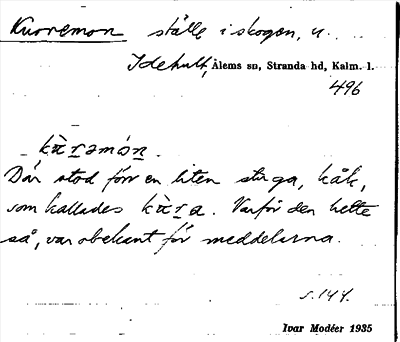 Kurremon ställe i skogen, n.
Idehult, Ålems sn, Stranda hd, Kalm. l.
496
Där stod förr en liten stuga, kåk,
som kallades. Varför den hette
så, var obekant för meddelarna.
s. 144.
Ivar Modéer 1935